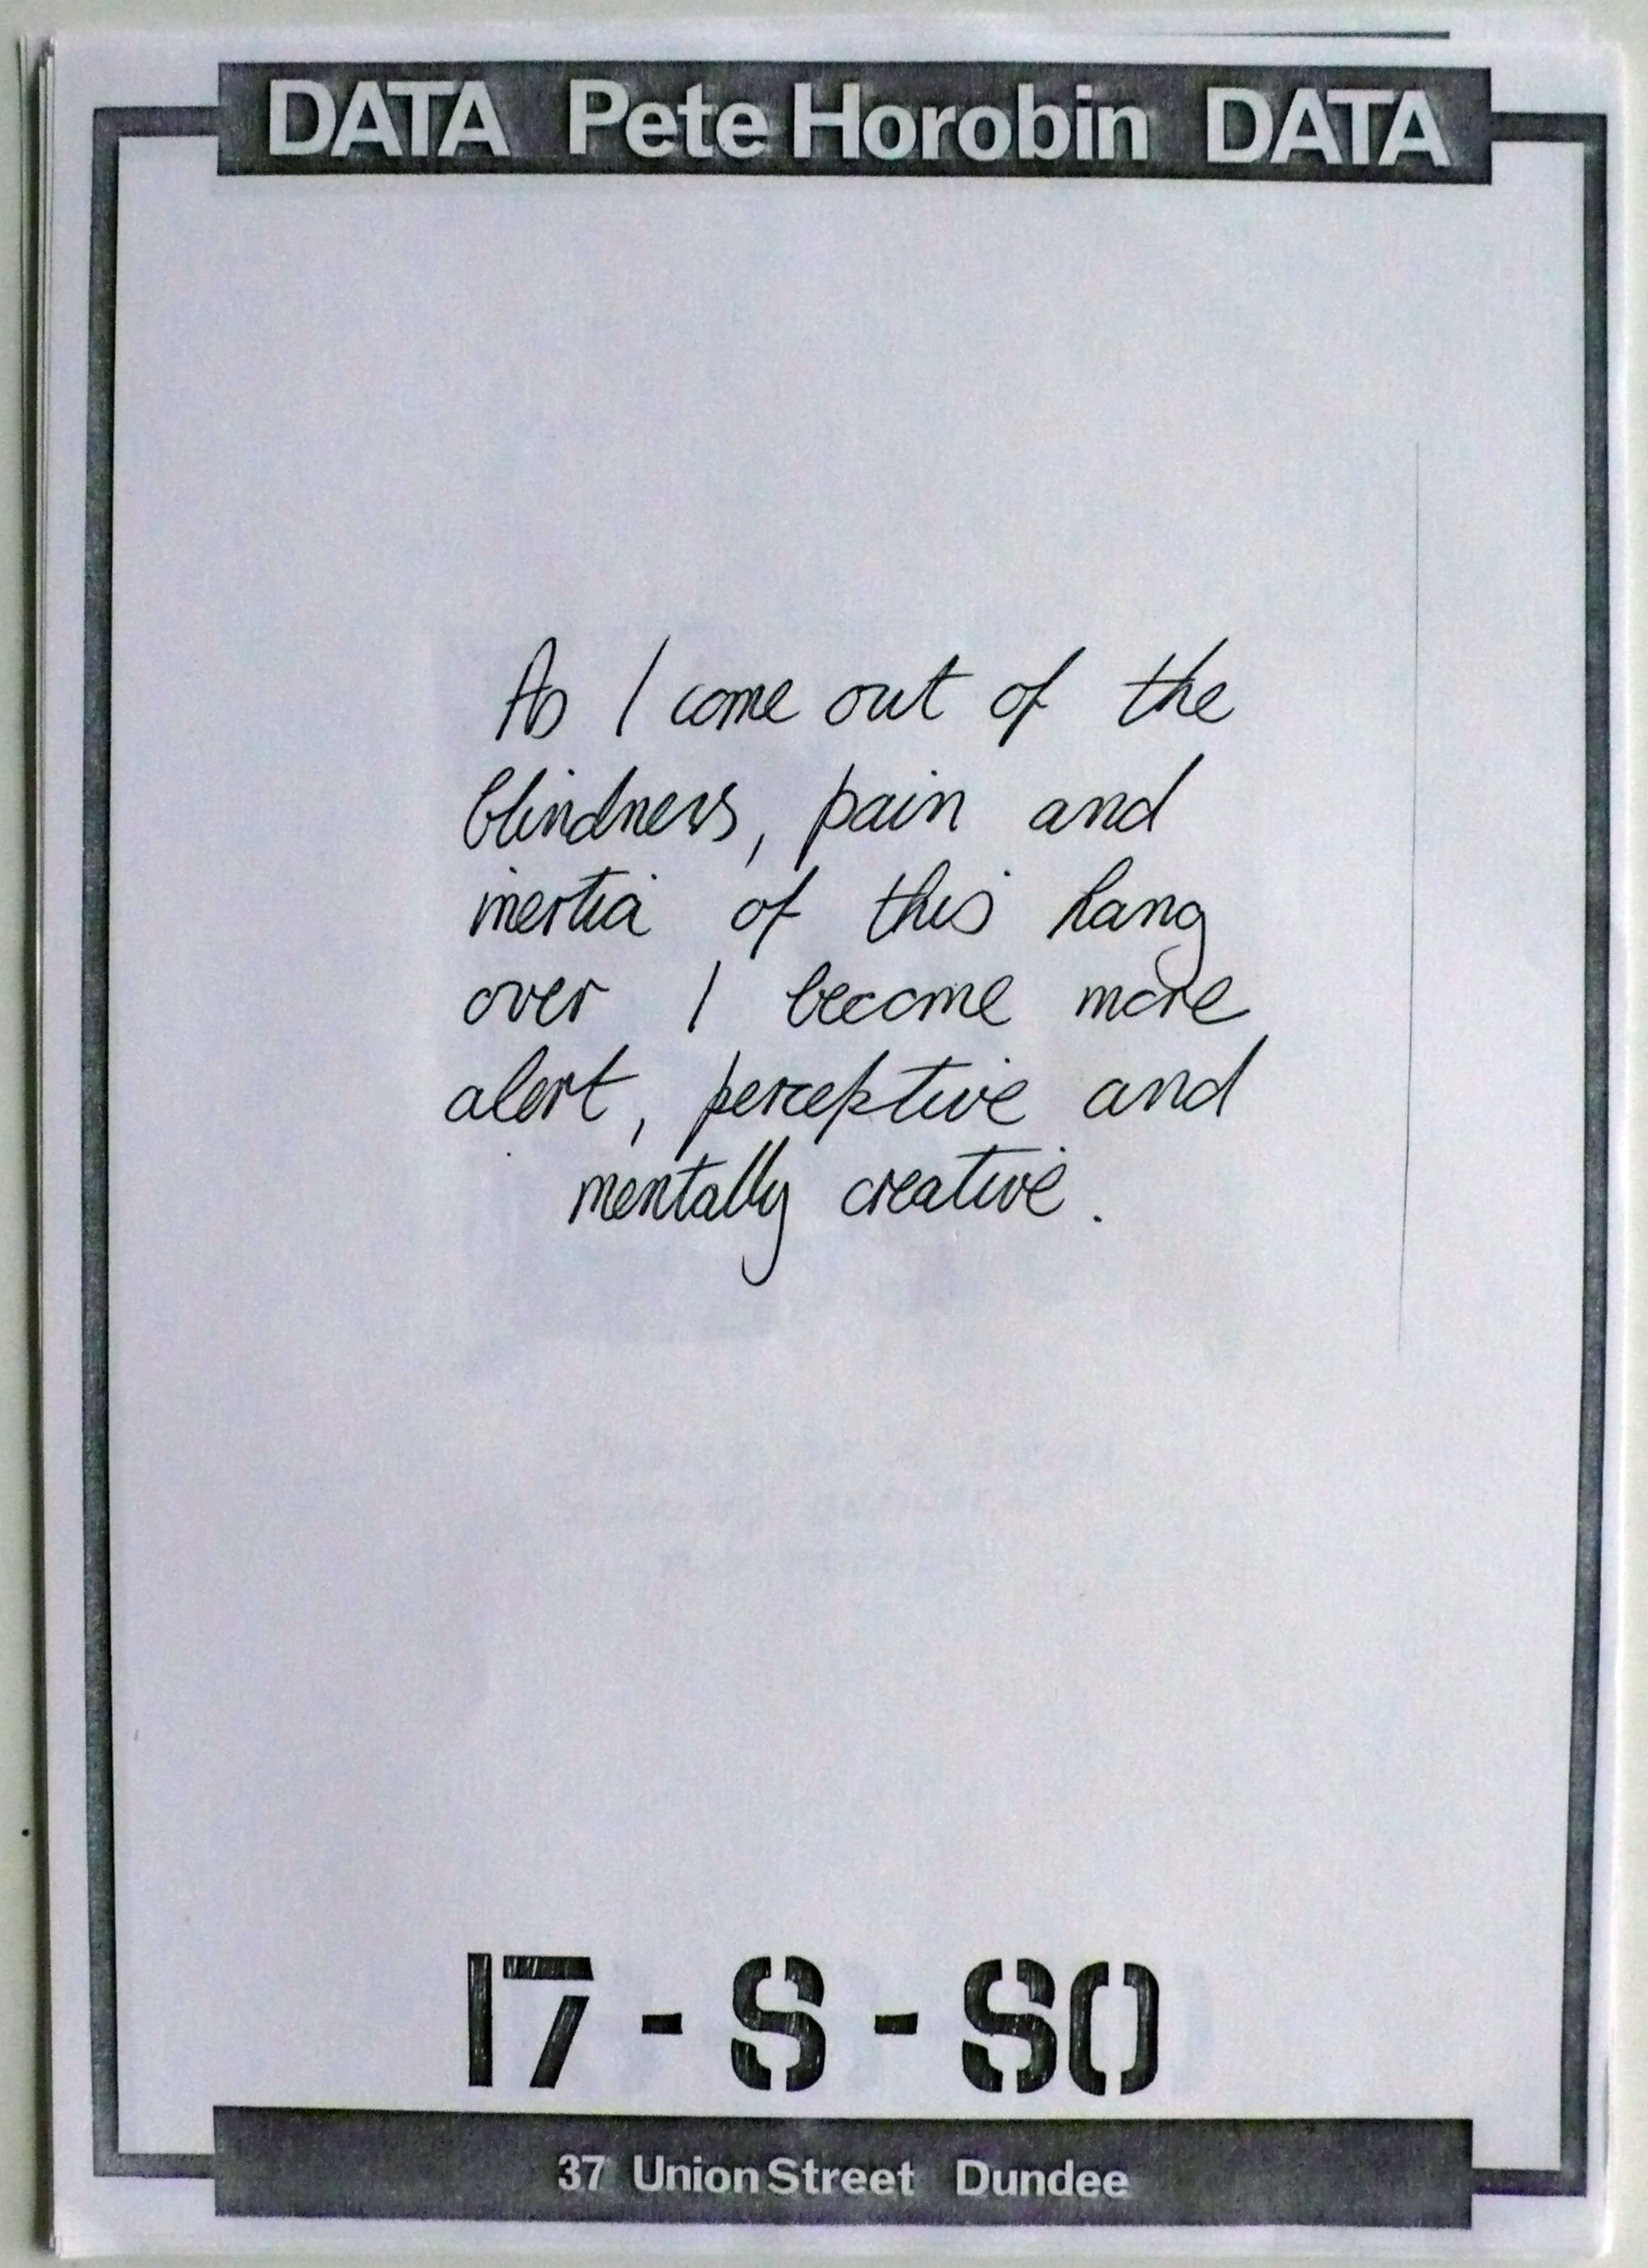 DATA Pete Horobin DATA
As I come out of the
blindness, pain and
inertia of this hang
over I become more
alert, perceptive and
mentally creative.
17-S-SO
37 Union Street Dundee